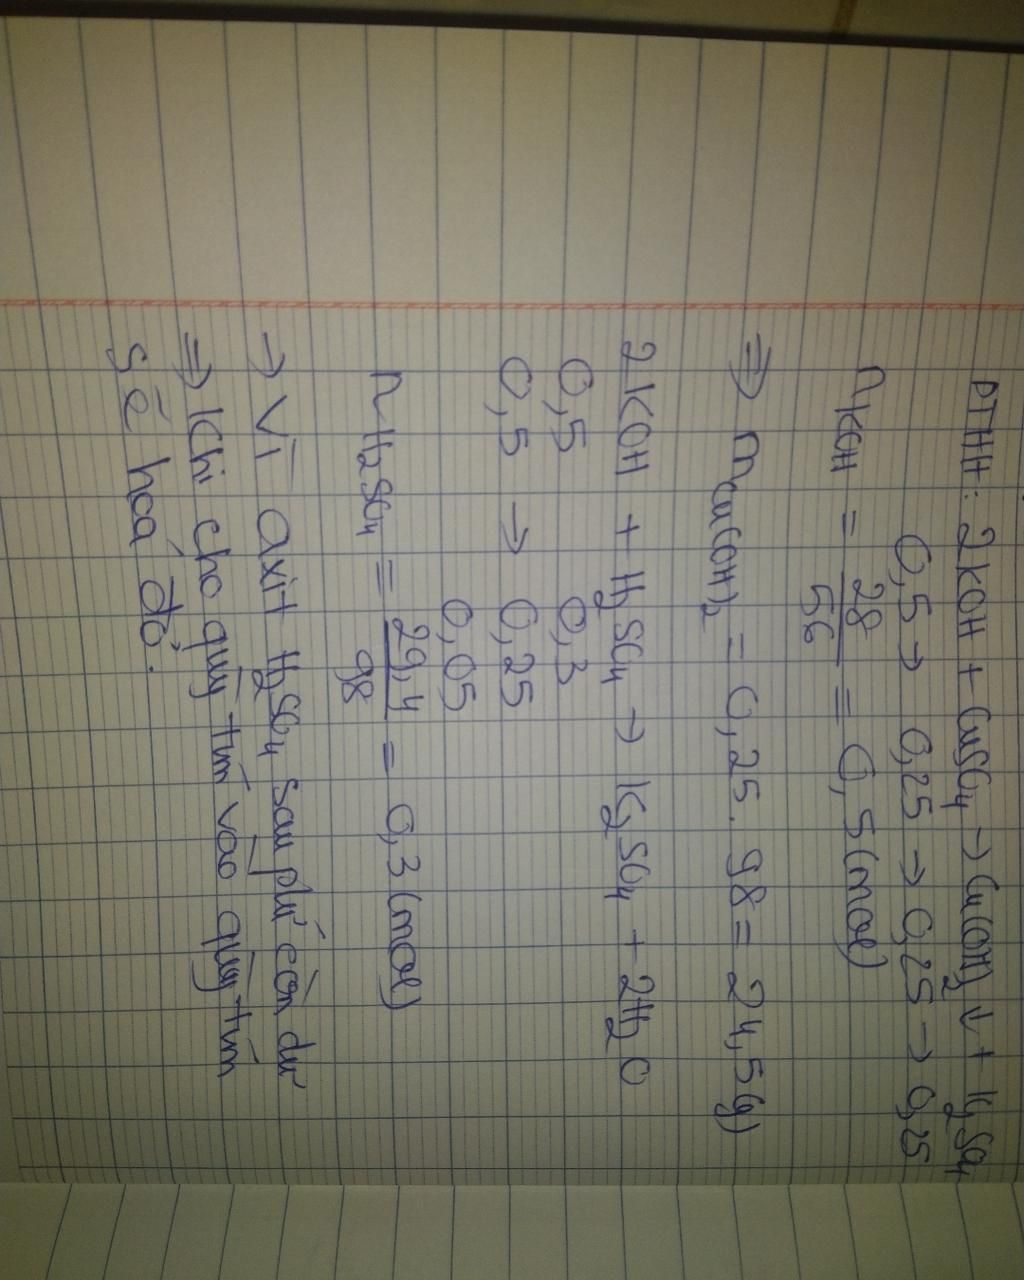 PTHH: 2KOH + CuSO4 → Cu(OH)2 ↓ + K2SO4
0,5 → 0,25 → 0,25 → 0,25
nKOH = 28/56 = 0,5 (mol)
⇒ mCu(OH)2 = 0,25 . 98 = 24,5 (g)
2KOH + H2SO4 → K2SO4 + 2H2O
0,5 0,3
0,5 → 0,25
0,05
nH2SO4 = 29,4/98 = 0,3 (mol)
→ Vì axit H2SO4 sau pứ còn dư
⇒ Khi cho quỳ tím vào quỳ tím
sẽ hoá đỏ.